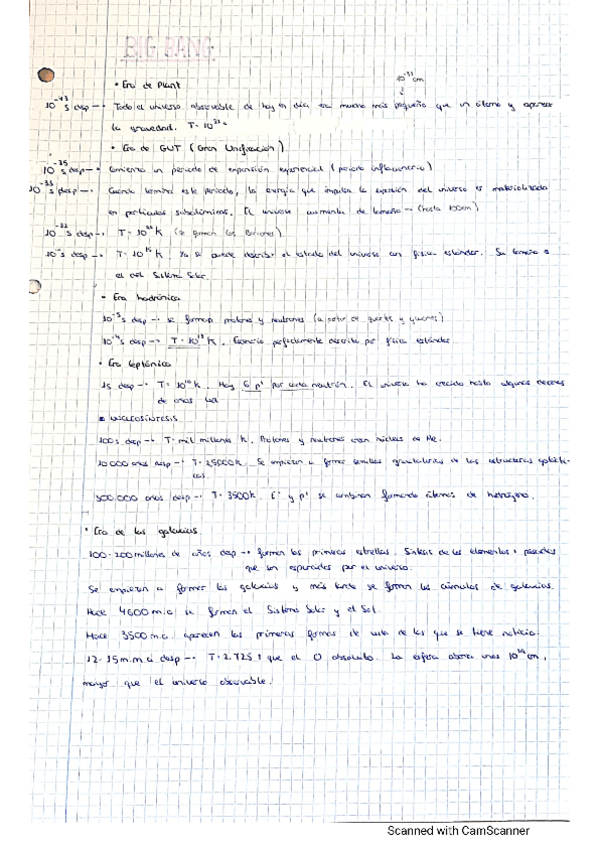 BIG BANG
• Era de Planck
10^-33 cm
10^-43 s desp → Todo el universo observable de hoy en día, era mucho más pequeño que un átomo y aparece
la gravedad. T = 10^32
• Era de GUT (Gran Unificación)
10^-35 s desp → Comienza un periodo de expansión exponencial (periodo inflacionario)
desp → Cuando termina este periodo, la energía que impulsa la expansión del universo es materializada
en partículas subatómicas. El universo aumenta de tamaño → (hasta 100cm)
desp → K (se forman los Bariones)
s desp → T = 10^15 K, Ya se puede describir el estado del universo con física estándar. Su tamaño es
el del Sistema Solar.
• Era hadrónica
10^-5 s desp → se forman protones y neutrones (a partir de quarks y)
10^-4 s desp → K, Escenario perfectamente descrito por física estándar
• Era leptónica
1s desp → T = 10^10 K. Hay 6 p+ por cada neutrón. El universo ha crecido hasta algunas decenas
de años luz
NUCLEOSÍNTESIS
100s desp → T = mil millones K. Protones y neutrones crean núcleos de He.
10000 años desp → T = 25000K. Se empiezan a formar semillas gravitatorias de las estructuras galácti-
cas.
300.000 años desp → T = 3500K. e- y p+ se combinan formando átomos de hidrógeno.
• Era de las galaxias
100-200 millones de años desp → forman las primeras estrellas. Síntesis de los elementos pesados
que son esparcidos por el universo.
Se empiezan a formar las galaxias y más tarde se forman los cúmulos de galaxias.
Hace 4600 m.a. se forman el Sistema Solar y el Sol.
Hace 3500 m.a. aparecen las primeras formas de vida de las que se tiene noticia.
12-15 m.m.a desp → T = 2.725 que el 0 absoluto. La esfera abarca unos cm,
mayor que el universo observable.
Scanned with CamScanner